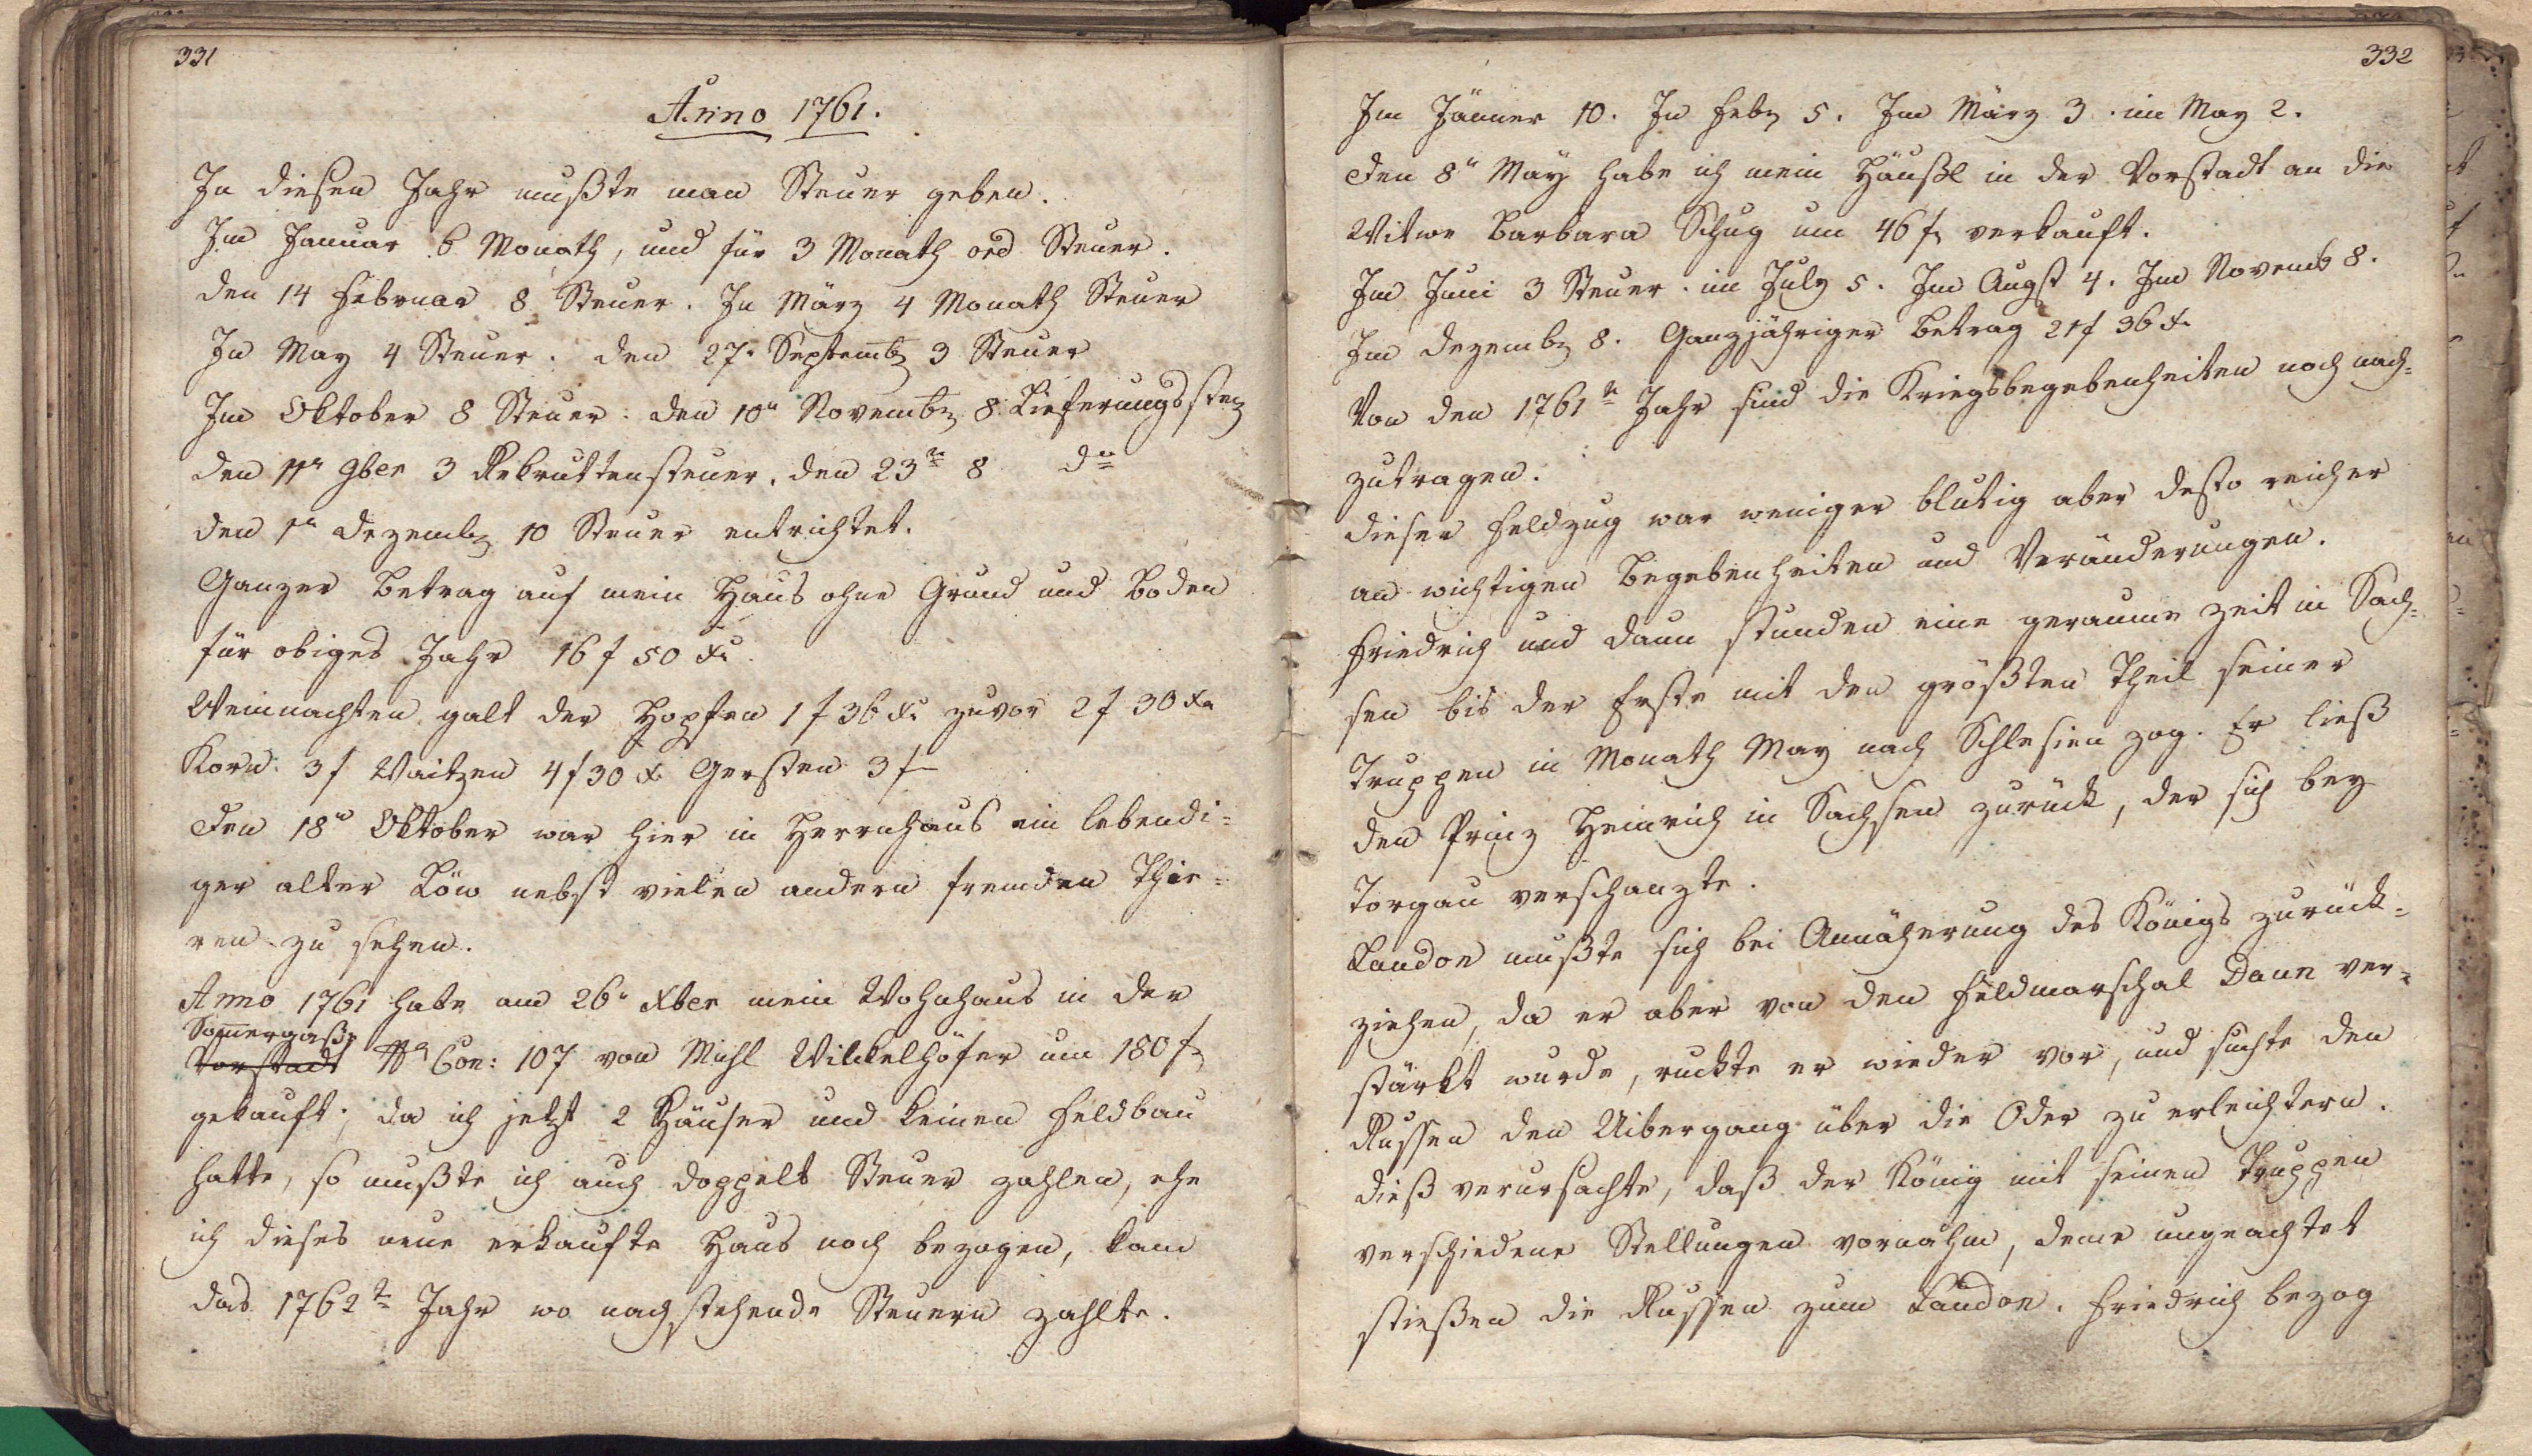 331
Anno 1761.
In diesen Jahr mußte man Steuer geben.
Im Januar 6 Monath, und für 3 Monath ord Steuer.
den 14 Februar 8 Steuer. In März 4 Monath Steuer
In May 4 Steuer. den 27. Septemb 3 Steuer
Im Oktober 8 Steuer. den 10n Novemb 8 Lieferungsste
den 11n 9ber 3 Rekruttensteuer. den 23n 8 do
den 1n Dezemb 10 Steuer entrichtet.
Ganzer Betrag auf mein Haus ohne Grund und Boden
für obiges Jahr 16 f 50 x.
Weinnachten galt der Hopfen 1 f 36 x. zuvor 2 f 30 x
Korn 3 f Waitzen 4 f 30 x Gersten 3 f
Den 18n Oktober war hier in Herrnhaus ein lebendi=
ger alter Löw nebst vielen andern fremden Thie=
ren zu sehen.
Anno 1761 habe am 26n Xber mein Wohnhaus in der
Sommergaße
Vorstadt No Con: 107 von Michl Wilkelhöfer um 180 f
gekauft; da ich jetzt 2 Häuser und keinen Feldbau
hatte, so mußte ich auch doppelt Steuer zahlen, ehe
ich dieses neue erkaufte Haus noch bezogen, kam
das 1762te Jahr wo nachstehende Steuern zahlte.
332
Im Jänner 10. In Feb 5. Im März 3. im May 2.
Den 8n May habe ich mein Häußl in der Vorstadt an die
Witwe Barbara Schug um 46 f verkauft.
Im Juni 3 Steuer. im July 5. Im Augst 4. Im Novemb 8.
Im Dezemb 8. Ganzjähriger Betrag 21 f 36 x.
Von den 1761n Jahr sind die Kriegsbegebenheiten noch nach=
zutragen.
Dieser Feldzug war weniger blutig aber desto reicher
an wichtigen Begebenheiten und Veränderungen.
Friedrich und Daun stunden eine geraume Zeit in Sach=
sen bis der Erste mit den größten Theil seiner
Truppen in Monath May nach Schlesien zog. Er ließ
den Prinz Heinrich in Sachsen zurück, der sich bey
Torgau verschanzte.
Laudon mußte sich bei Annäherung des Königs zurück=
ziehen, da er aber von den Feldmarschal Daun ver=
stärkt wurde, ruckte er wieder vor, und suchte den
Russen den Uibergang über die Oder zu erleichtern.
Dieß verursachte, daß der König mit seinen Truppen
verschiedene Stellungen vornahm, deme ungeachtet
stießen die Russen zum Laudon. Friedrich bezog